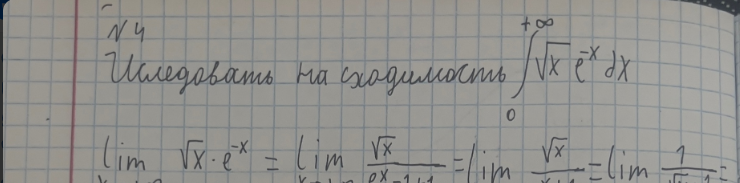 N 4
Иследовать на сходимость ∫₀^{+∞} √x e^{-x} dx
lim √x · e^{-x} = lim √x / e^x-1+1 = lim √x / x+1 = lim 1 /